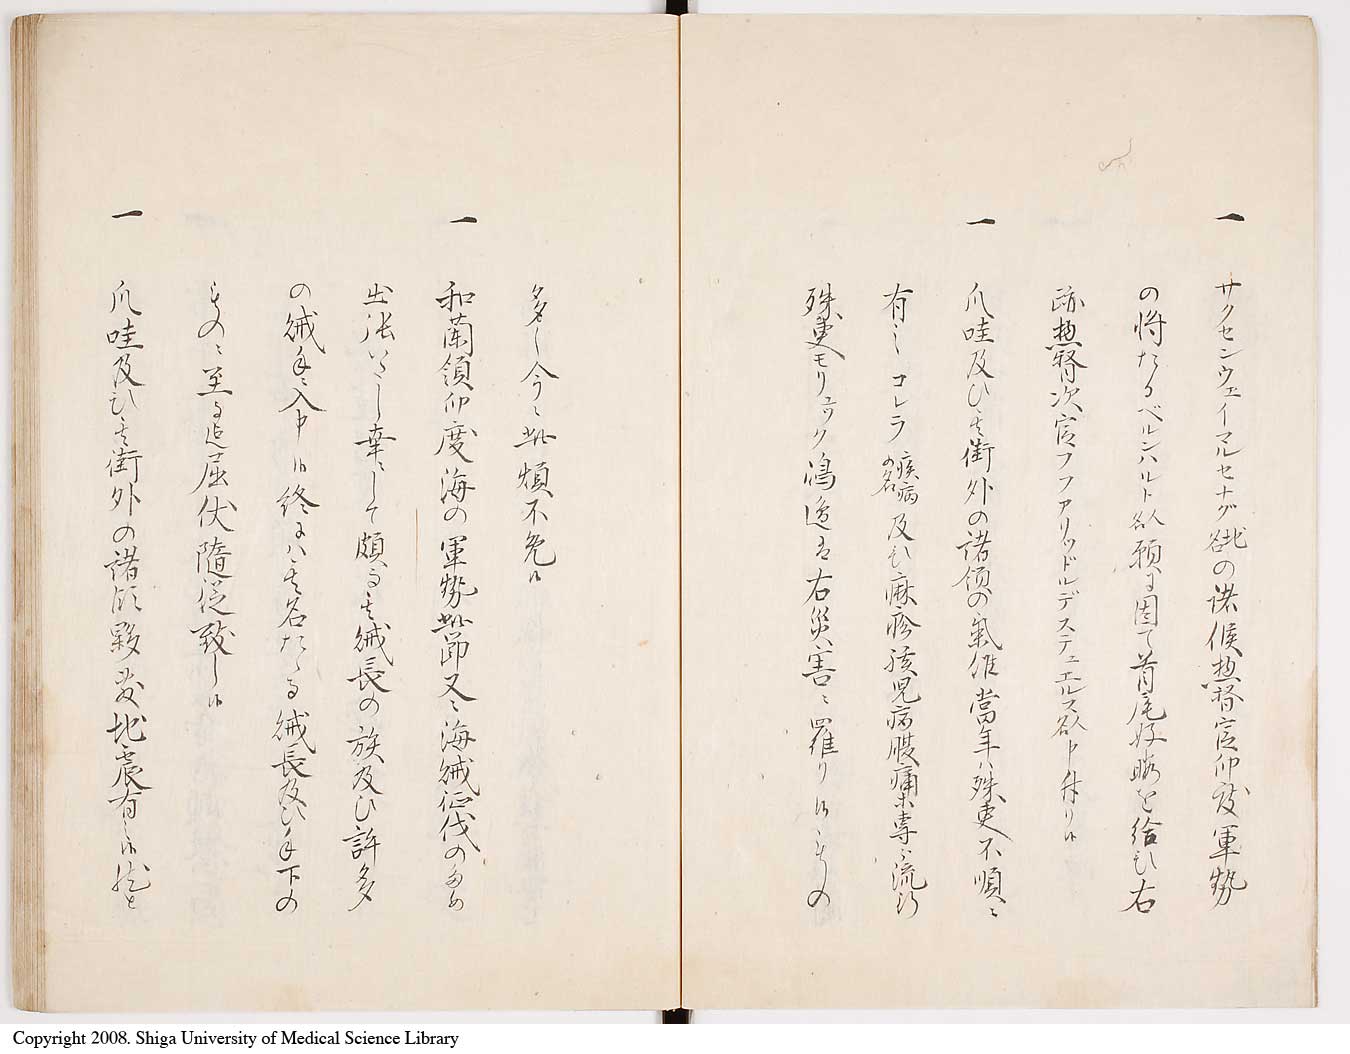 一 サクセンウェイマルセナグ地名の諸侯惣督官印度軍勢
の将たるベルンハルト人名願に因て首尾好暇を給ひ右
跡惣督次官フファリッドルデステュエルス人名申付り候
一 爪哇及ひ其街外の諸領の氣候當年ハ殊更不順ニ
有之コレラ疾病の名及ひ麻疹孩児病腹痛等専ら流行
殊更モリュック鴻邊は右災害ニ羅り候もの
多し今ニ此煩不免候
一 和蘭領印度海の軍勢此節又々海賊征伐のため
出張いたし幸にして頗る其賊長の族及ひ許多
の賊手ニ入申候終にハ其名たゝる賊長及ひ手下の
ものニ至る迄屈伏隨従致し候
一 爪哇及ひ其街外の諸所夥敷地震有之候然と
Copyright 2008. Shiga University of Medical Science Library